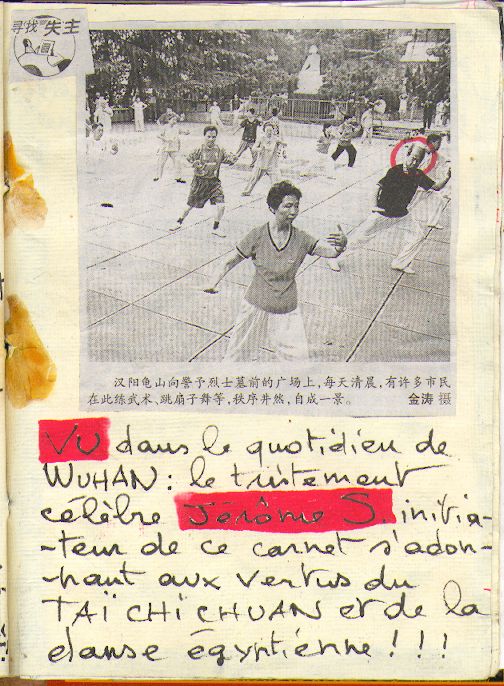 寻找"失主
汉阳龟山向警予烈士墓前的广场上，每天清晨，有许多市民
在此练武术、跳扇子舞等，秩序井然，自成一景。 金涛 摄
VU dans le quotidien de
WUHAN : le tristement
célèbre Jérôme S. initia-
-teur de ce carnet s'adon-
-nant aux vertus du
TAÏ CHI CHUAN et de la
danse égyptienne ! ! !